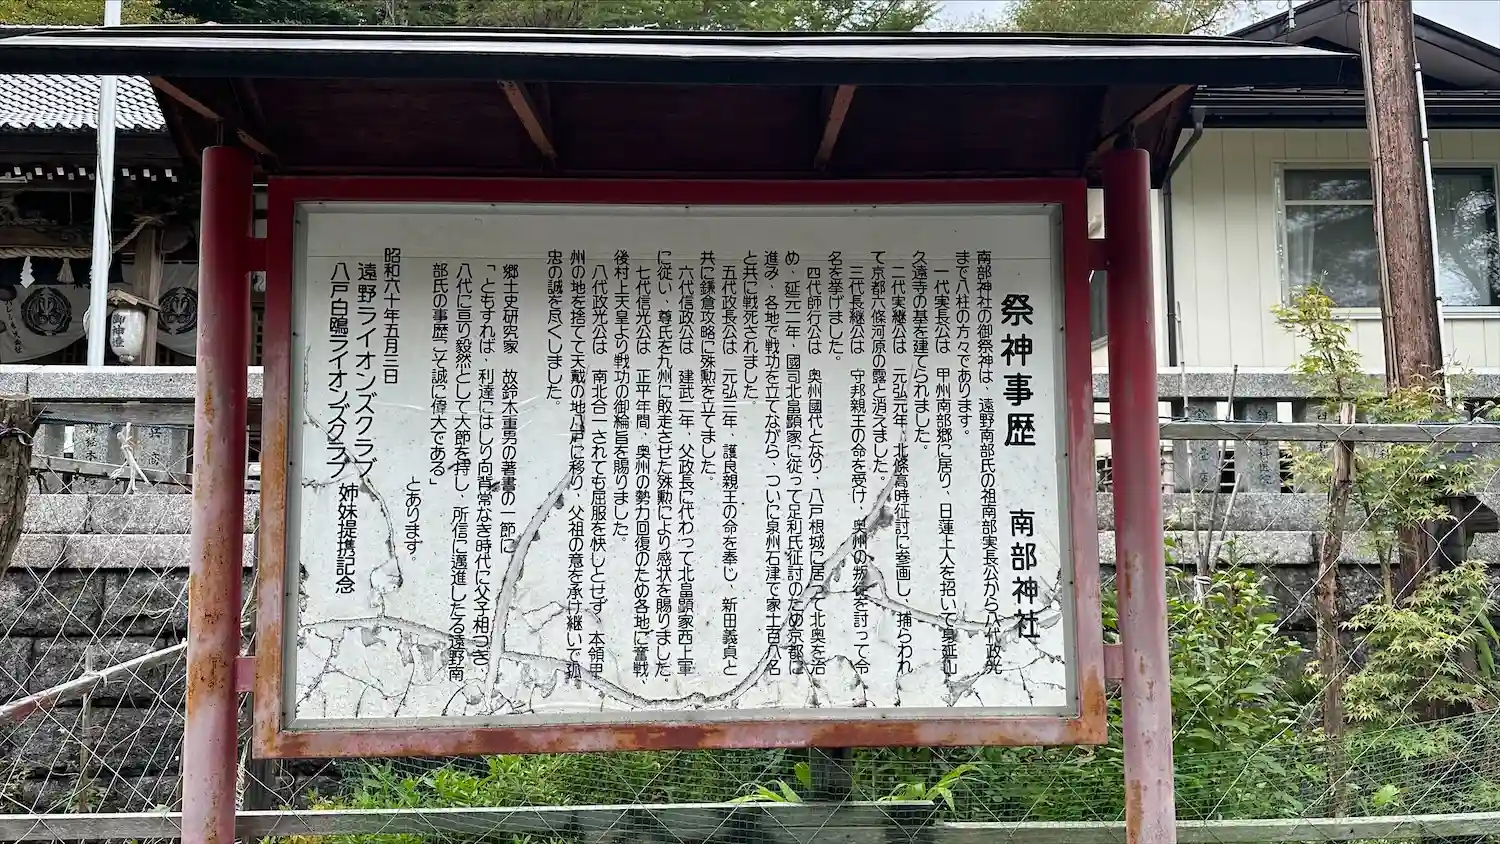 祭神事歴　南部神社
南部神社の御祭神は、遠野南部氏の祖南部実長公から八代政光
まで八柱の方々であります。
一代実長公は　甲州南部郷に居り、日蓮上人を招いて身延山
久遠寺の基を建てられました。
二代実継公は　元弘元年、北條高時征討に参画し、捕らわれ
て京都六條河原の露と消えました
三代長継公は　守邦親王の命を受け、奥州の叛徒を討って令
名を挙げました。
四代師行公は　奥州國代となり、八戸根城に居って北奥を治
め、延元二年、國司北畠顕家に従って足利氏征討のため京都に
進み、各地で戦功を立てながら、ついに泉州石津で家士百八名
と共に戦死されました。
五代政長公は　元弘三年　護良親王の命を奉じ、新田義貞と
共に鎌倉攻略に殊勲を立てました。
六代信政公は　建武二年、父政長に代わって北畠顕家西上軍
に従い、尊氏を九州に敗走させた殊勲により感状を賜りました。
七代信光公は　正平年間、奥州の勢力回復のため各地に奮戦
後村上天皇より戦功の御綸旨を賜りました。
八代政光公は　南北合一されても屈服を快しとせず、本領甲
州の地を捨てて天戴の地八戸に移り、父祖の意を承け継いで孤
忠の誠を尽くしました。
郷土史研究家　故鈴木重男の著書の一節に
「ともすれば、利達にはしり向背常なき時代に父子相つぎ、
八代に亘り毅然として大節を持し、所信に邁進したる遠野南
部氏の事歴こそ誠に偉大である」
とあります。
昭和六十年五月三日
遠野ライオンズクラブ
八戸白鴎ライオンズクラブ　姉妹提携記念
御神燈